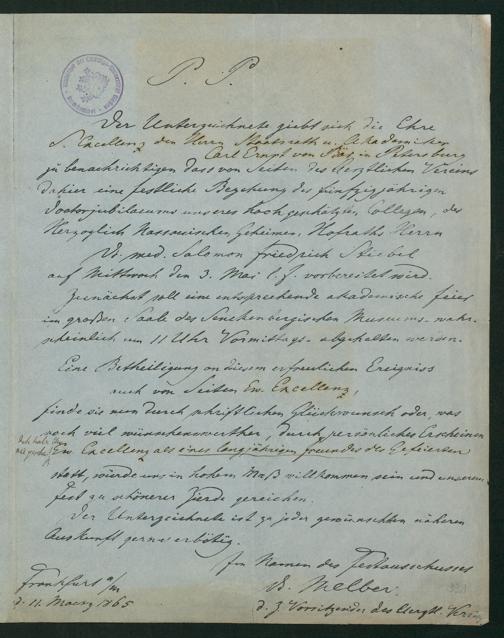 P. P.
Der Unterzeichnete giebt sich die Ehre
S. Excellenz den Herrn Staatsrath u. Akademiker
Carl Ernst von Bär, in Petersburg
zu benachrichtigen dass von Seiten des ärztlichen Vereins
dahier eine festliche Begehung des fünfzigjährigen
Doctorjubilaeums unseres hoch geschätzten Collegen, des
Herzoglich Nassauischen Geheimen Hofraths Herrn
Dr. med. Salomon Friedrich Stiebel
auf Mittwoch den 3. Mai l. J. vorbereitet wird.
Zunächst soll eine entsprechende akademische Feier
im großen Saale des Senckenbergischen Museums - wahr-
scheinlich um 11 Uhr Vormittags - abgehalten werden.
Eine Betheiligung an diesem erfreulichen Ereigniss
auch von Seiten Ew. Excellenz,
finde sie nun durch schriftlichen Glückwunsch oder, was
noch viel wünschenswerther, durch persönliches Erscheinen
Ew. Excellenz als eines langjährigen Freundes des Gefeierten
statt, würde uns in hohem Maß willkommen sein und unserem
Fest zu schönerer Zierde gereichen.
Der Unterzeichnete ist zu jeder gewünschten näheren
Auskunft gerne erbötig.
Im Namen des Festausschusses
Dr. Melber.
d. Z. Vorsitzender des ärztl. Vereins
Frankfurt a/M
d. 11. Maerz 1865